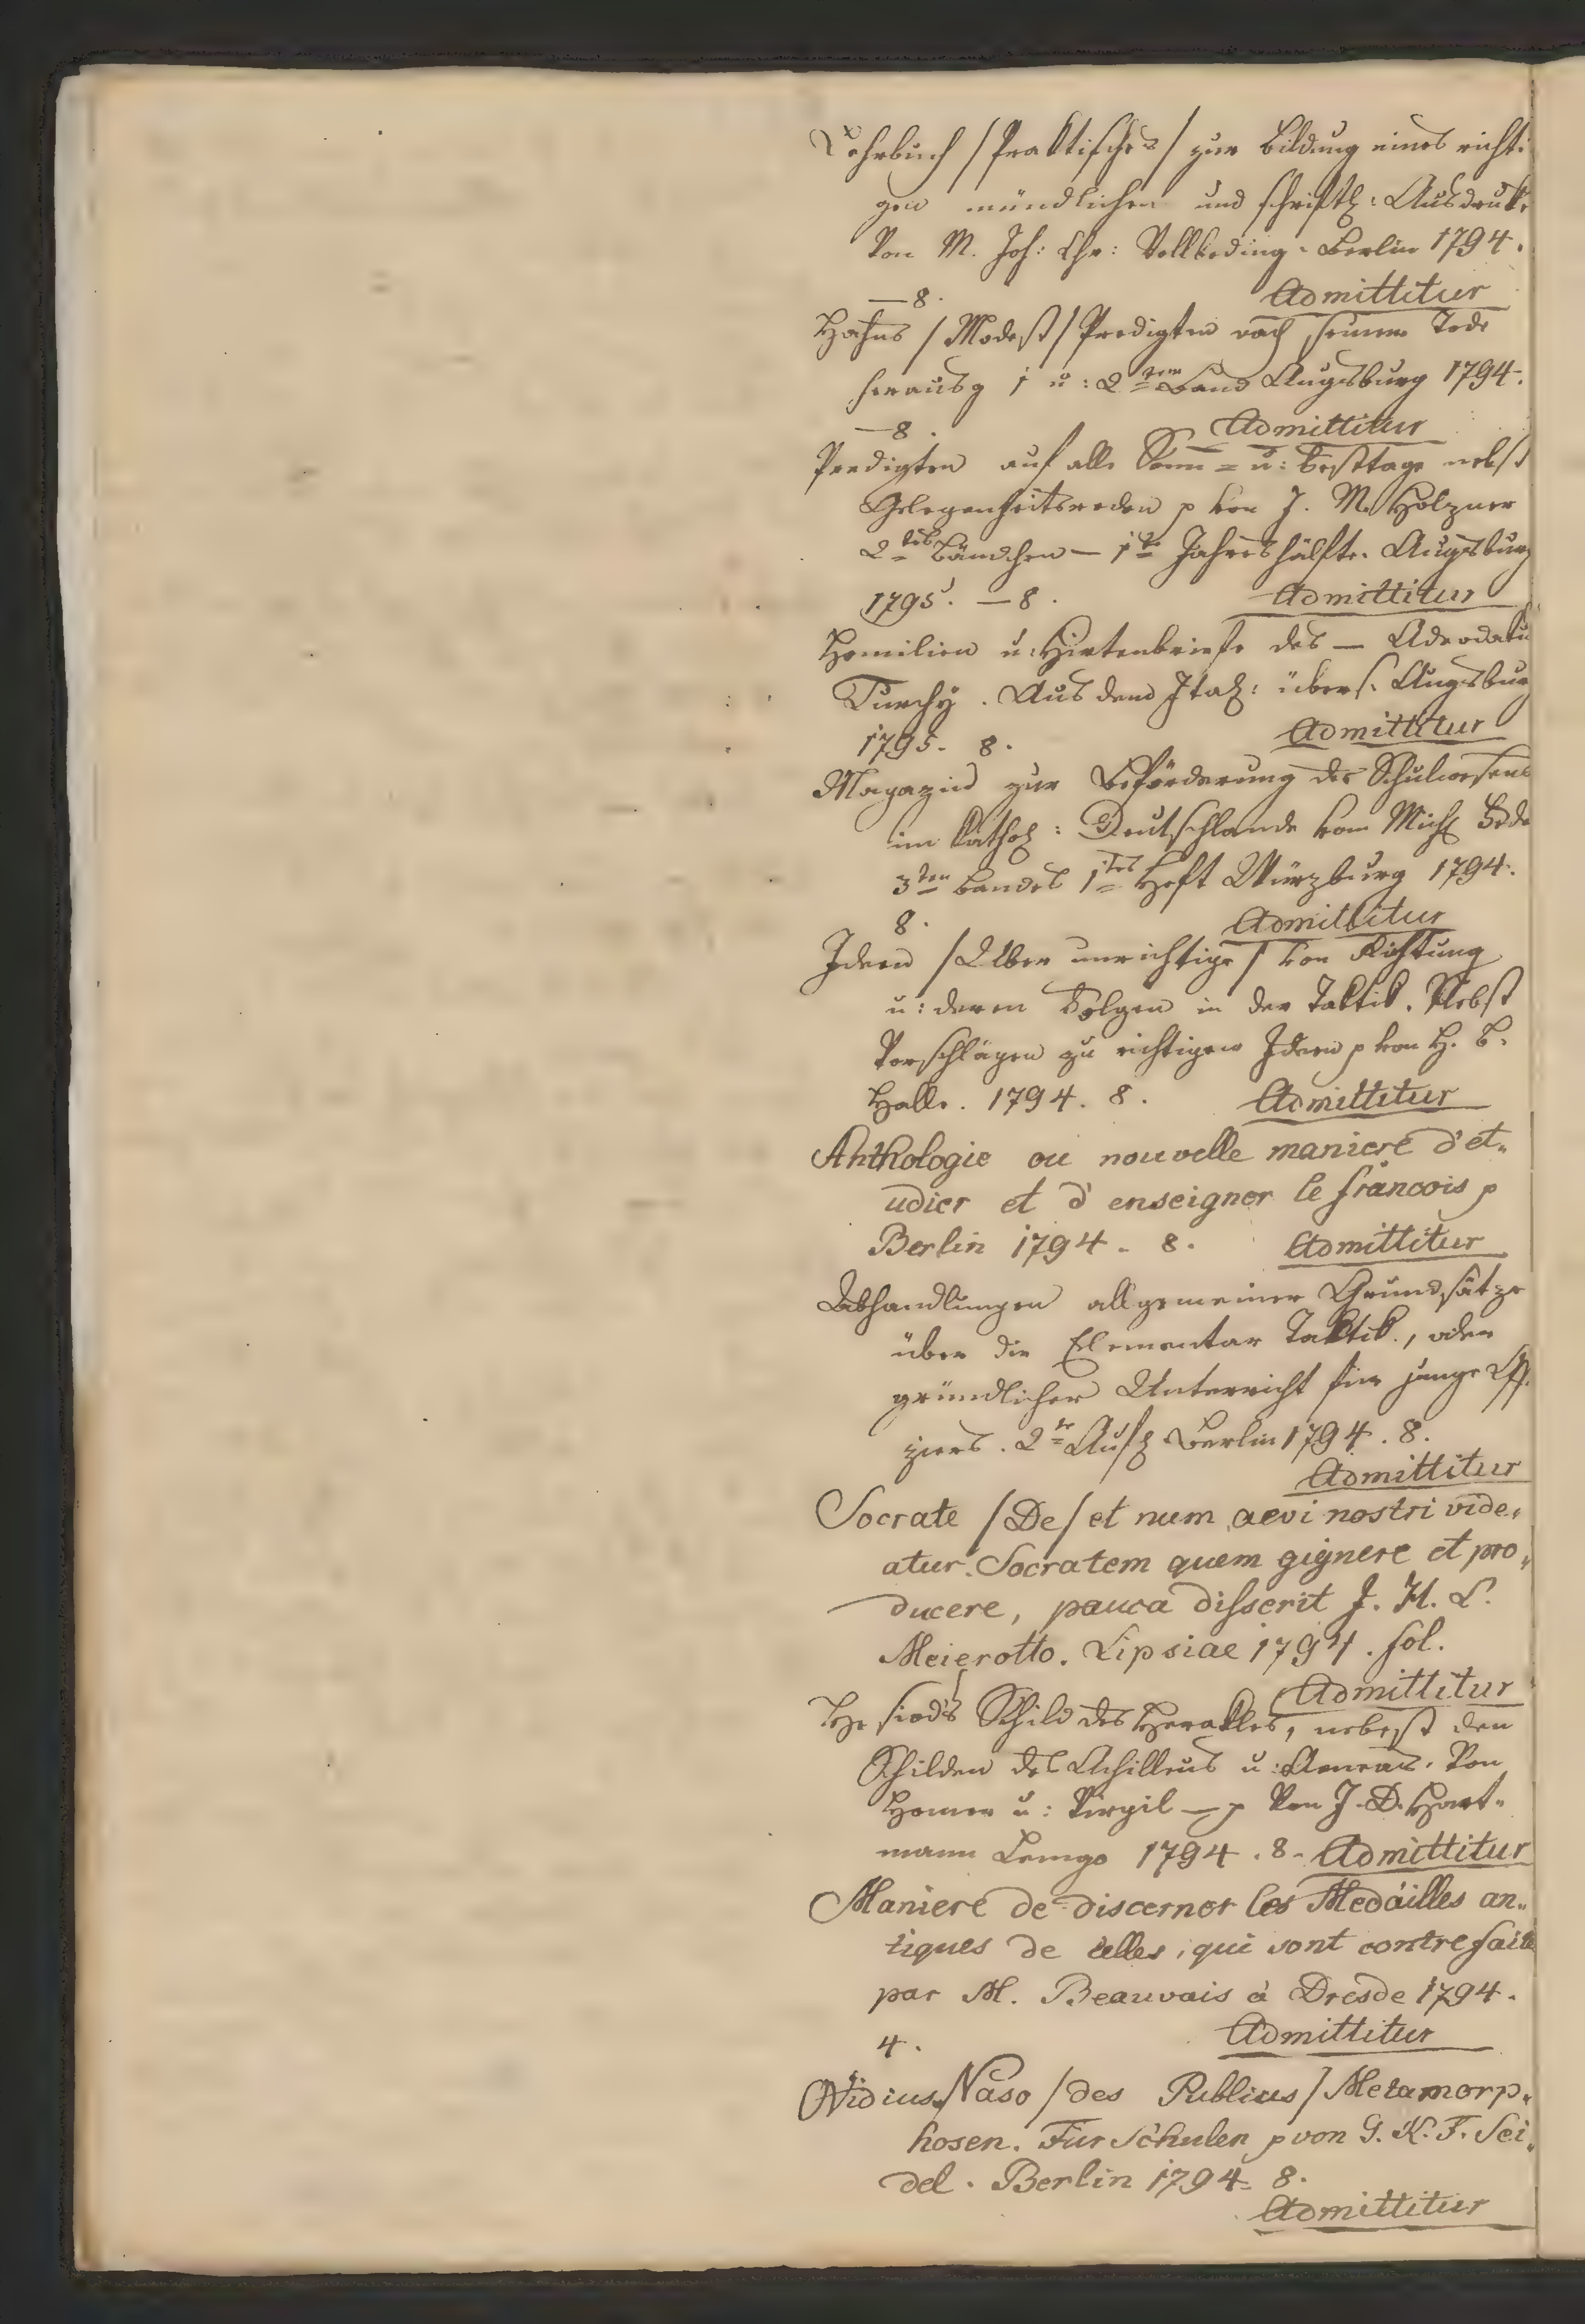 Lehrbuch /Praktisches/ zur Bildung eines richti
gen mündlichen und schriftl: Ausdruks
Von M. Joh: Chr: Vollbeding. Berlin 1794.
—8. Admittitur
Hahns /Modest/ Predigten nach seinem Tode
herausg 1 u: 2ter Band Augsburg 1794.
—8. Admittitur
Predigten auf alle Sonn= u: Festtage nebst
Gelegenheitsreden p von J. M. Holzner
2tes Bändchen — 1te Jahreshälfte. Augsburg
1795. —8. Admittitur
Homilien u: Hirtenbriefe des — Adeodatu
Turchÿ. Aus dem Ital: übers. Augsburg
1795. 8. Admittitur
Magazin zur Beförderung des Schulwesens
im Kathol: Deutschlande von Mich
3ten Bandes 1tes Heft Würzburg 1794.
8. Admittitur
Ideen /Über unrichtige/ von Richtung
u: deren Folgen in der Taktik. Nebst
Vorschlägen zu richtigen Ideen p von H. B.
Halle. 1794. 8. Admittitur
Anthologie ou nouvelle maniere d'et„
udier et d'enseigner le francois p
Berlin 1794. 8. Admittitur
Abhandlungen allgemeiner Grundsätze
über die Elementar Taktik, oder
gründlicher Unterricht für junge Offi
ziers. 2te Aufl Berlin 1794. 8.
Admittitur
Socrate /De/ et num aevi nostri vide„
atur Socratem quem gignere et pro„
ducere, pauca disserit J. H. L.
Meierotto. Lipsiae 1794. fol.
Admittitur
Hesiods Schild des Herakles, nebst den
Schilden des Achilleus u: Aeneas. Von
Homer u: Virgil — p Von J. D. Hart„
mann Lemgo 1794. 8. Admittitur
Maniere de discerner les Medailles an„
tiques de celles, qui sont contrefaite
par M. Beauvais à Dresde 1794.
4. Admittitur
Ovidius Naso /des Publius/ Metamorp„
hosen. Fur Schulen p von G. K. F. Sei„
del. Berlin 1794. 8.
Admittitur